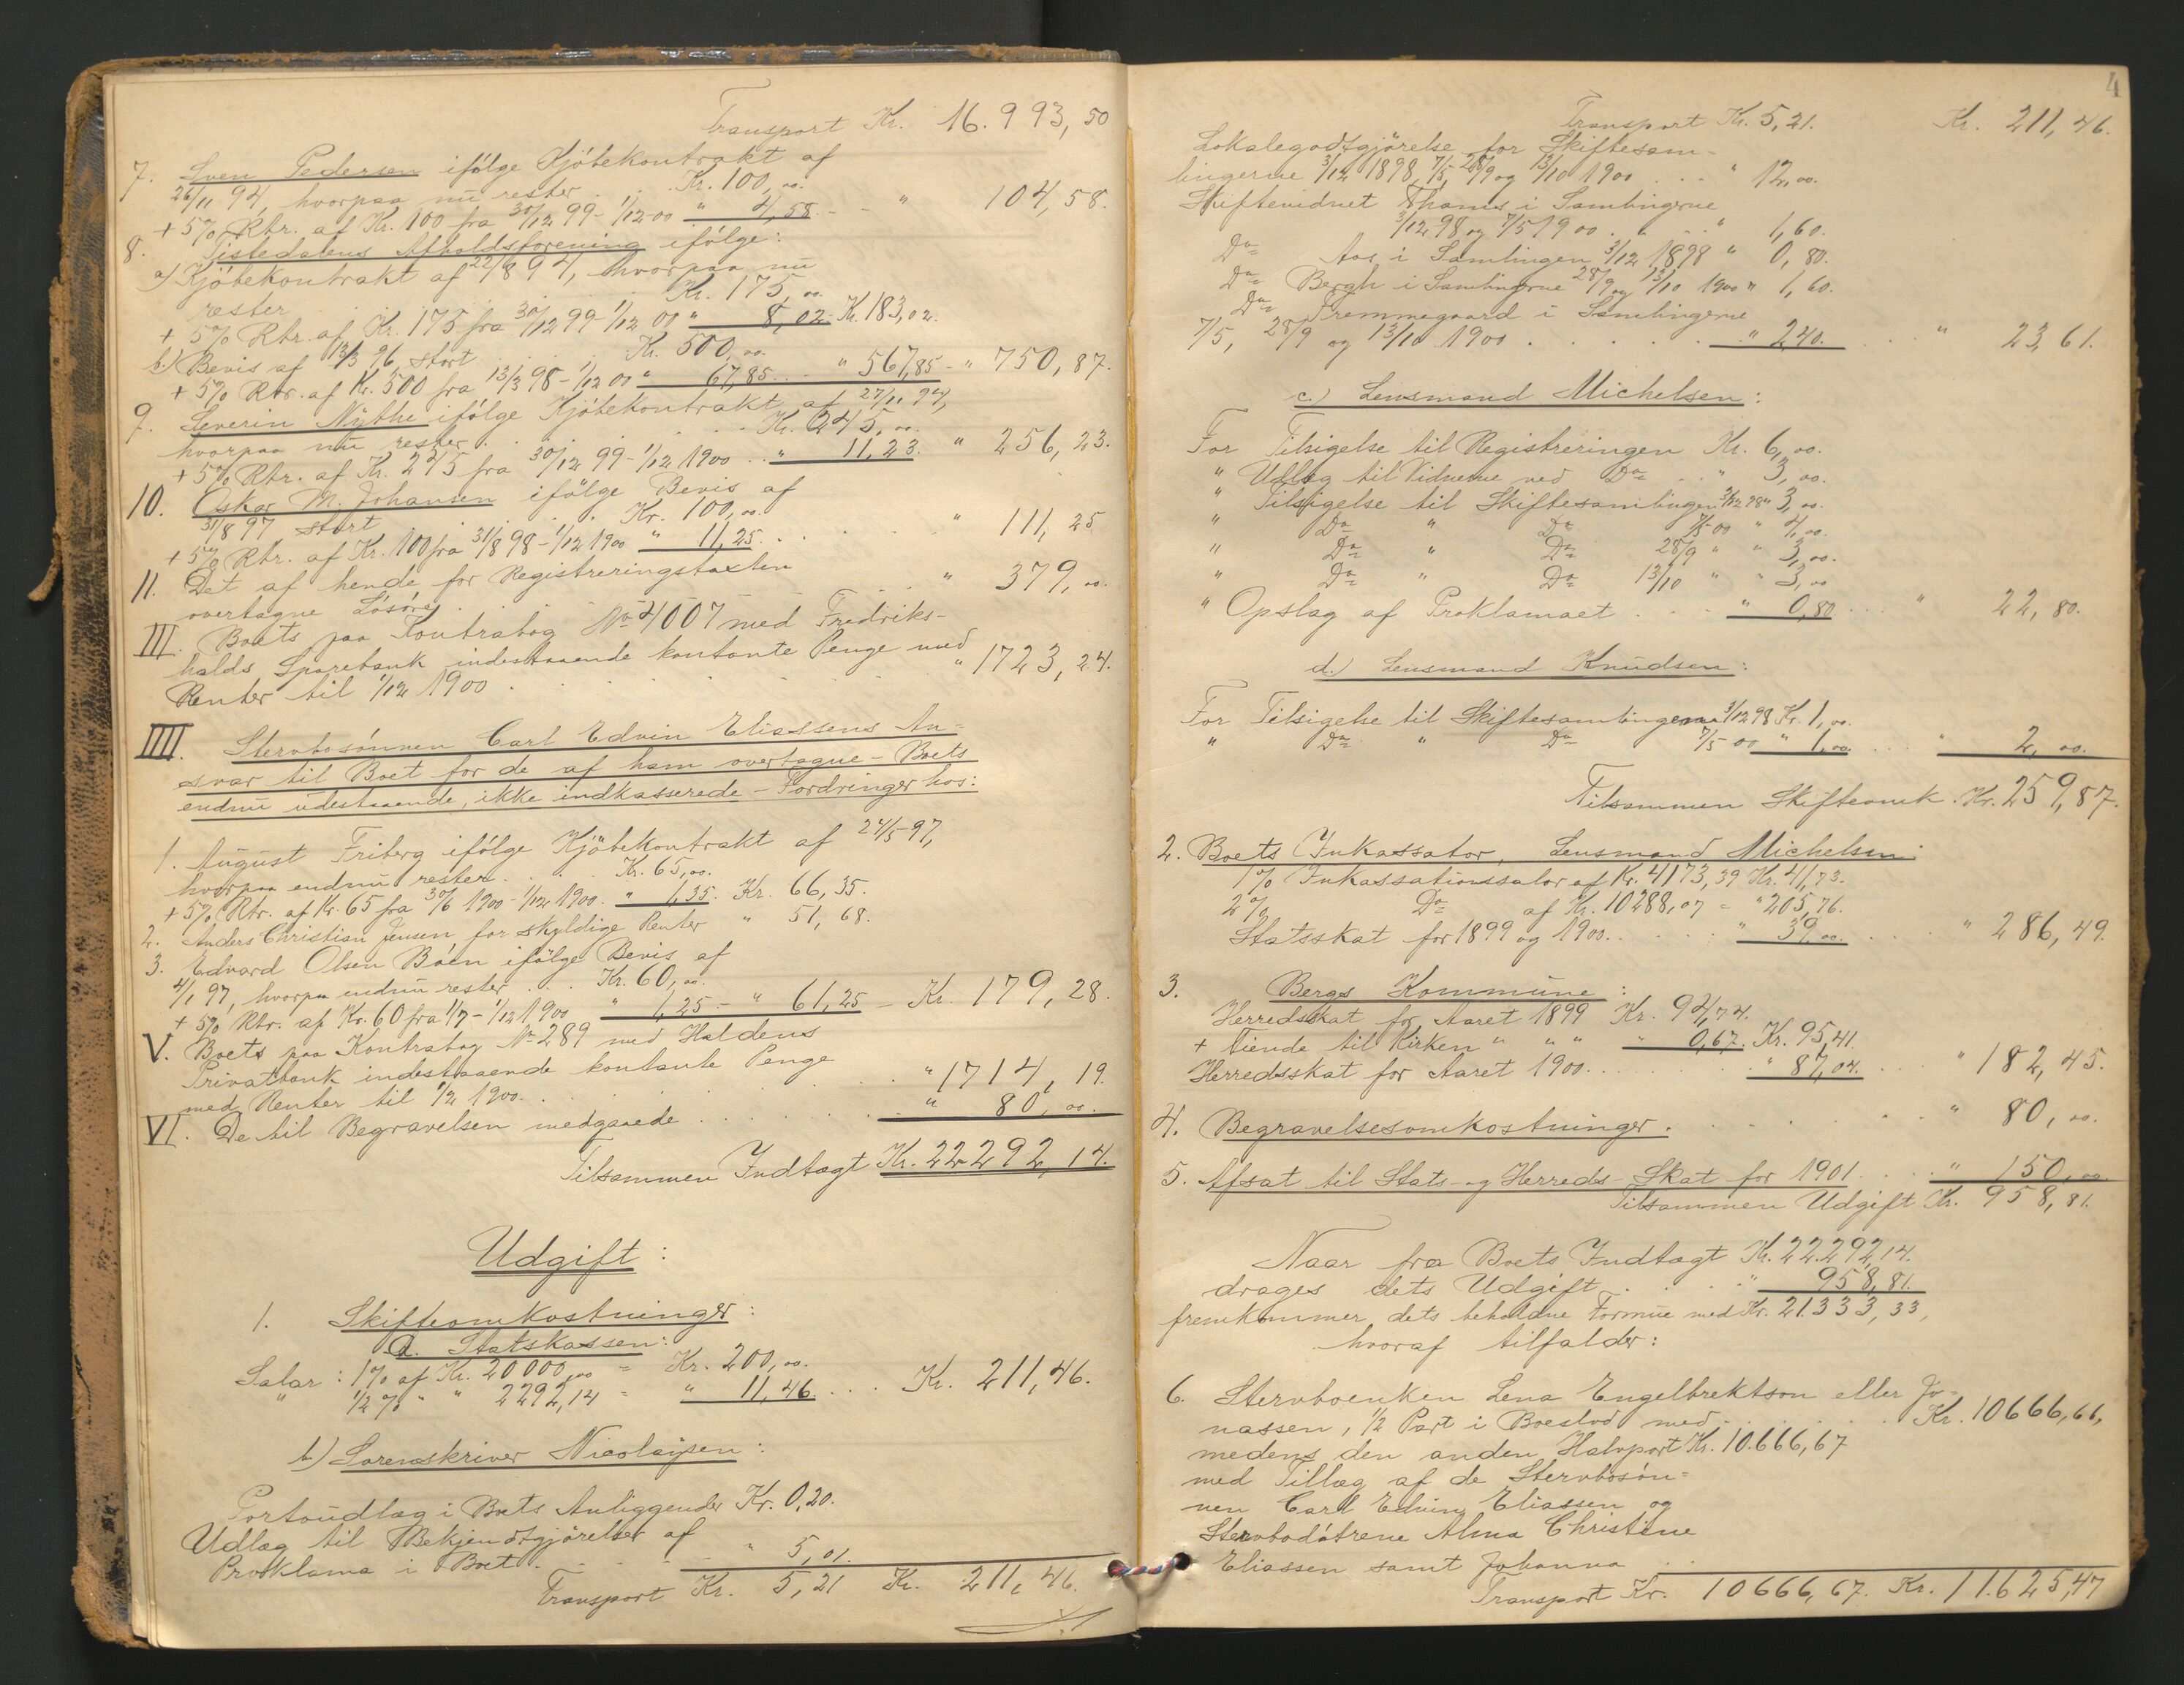 Transport Kr. 16.993,50
7. Sven Pedersen ifölge Kjöbekontrakt af
26/11 94, hvorpaa nu rester . . . Kr. 100,00.
+ 5% Rtr. af Kr. 100 fra 30/12 99 - 1/12 00 " 4,58. - - " 104,58.
8. Tistedalens Afholdsforening ifölge:
a) Kjöbekontrakt af 22/8 94, hvorpaa nu
rester . . . Kr. 175,00.
+ 5% Rtr. af Kr. 175 fra 30/12 99 - 1/12 00 " 8,02 - Kr. 183,02.
b.) Bevis af 13/3 96, stort . . . Kr. 500,00.
+ 5% Rtr. af Kr. 500 fra 13/3 98 - 1/12 00 " 67,85 . . " 567,85 - " 750,87.
9. Severin Nythe ifölge Kjöbekontrakt af 27/11 94,
hvorpaa nu rester . . . Kr. 245,00.
+ 5% Rtr. af Kr. 245 fra 30/12 99 - 1/12 1900 . . " 11,23. " 256,23.
10. Oskar M. Johansen ifölge Bevis af
31/8 97 stort . . . Kr. 100,00.
+ 5% Rtr. af Kr. 100 fra 31/8 98 - 1/12 1900 " 11,25. . . . " 111,25
11. Det af hende for Registreringstaxten
overtagne Lösöre . . . " 379,00.
III. Boets paa Kontrabog No 4007 med Fredriks-
halds Sparebank indestaaende kontante Penge med
Renter til 1/12 1900 . . . " 1723,24.
IIII. Stervbosönnen Carl Edvin Eliassens An=
svar til Boet for de af ham overtagne - Boets
endnu udestaaende, ikke indkasserede - Fordringer hos:
1. August Friberg ifölge Kjöbekontrakt af 24/5 97,
hvorpaa endnu rester . . . Kr. 65,00.
+ 5% Rtr. af Kr. 65 fra 30/6 1900 - 1/12 1900. " 1,35. Kr. 66,35.
2. Anders Christian Jensen for skyldige Renter " 51,68.
3. Edvard Olsen Böen ifölge Bevis af
4/1 97, hvorpaa endnu rester . . . Kr. 60,00.
+ 5% Rtr. af Kr. 60 fra 1/7 - 1/12 1900 " 1,25 - " 61,25 - Kr. 179,28.
V. Boets paa Kontrabog No 289 med Haldens
Privatbank indestaaende kontante Penge
med Renter til 1/12 1900. . . . " 1714,19.
VI. De til Begravelsen medgaaede . . . " 80,00.
Tilsammen Indtægt Kr. 22292,14.
Udgift:
1. Skifteomkostninger:
a. Statskassen:
Salar: 1% af Kr. 20000,00 = Kr. 200,00.
" 1/2% " " 2292,14 = " 11,46. . . . Kr. 211,46.
b) Sorenskriver Nicolaysen:
Portoudlæg i Boets Anliggender Kr. 0,20.
Udlæg til Bekjendtgjörelser af
Proklama i Boet . . . " 5,01.
Transport Kr. 5,21 Kr. 211,46.
4
Transport Kr. 5,21. Kr. 211,46.
Lokalegodtgjörelse for Skiftesam-
lingerne 3/12 1898, 7/5, 28/9 og 13/10 1900 . . . " 12,00.
Skiftevidnet Thams i Samlingerne
3/12 98 og 7/5 1900 . . . " 1,60.
Do Aas i Samlingen 3/12 1898 " 0,80.
Do Bergh i Samlingerne 28/9 og 13/10 1900 " 1,60.
Do Fremmegaard i Samlingerne
7/5, 28/9 og 13/10 1900 . . . " 2,40. . . . " 23,61.
c.) Lensmand Michelsen:
For Tilsigelse til Registreringen Kr. 6,00.
" Udlæg til Vidnerne ved Do . . " 3,00.
" Tilsigelse til Skiftesamlingen 3/12 98 " 3,00.
" Do " Do 7/5 00 " 4,00.
" Do " Do 28/9 " " 3,00.
" Do " Do 13/10 " " 3,00
" Opslag af Proklamaet . . . " 0,80 . . . " 22,80.
d.) Lensmand Knudsen:
For Tilsigelse til Skiftesamlingerne 3/12 98 Kr. 1,00.
" Do " Do 7/5 00 " 1,00. . . . " 2,00.
Tilsammen Skifteomk. Kr. 259,87.
2. Boets Inkassator, Lensmand Michelsen:
1% Inkassationssalar af Kr. 4173,39 Kr. 41,73.
2% Do af Kr. 10288,07 = " 205,76.
Statsskat for 1899 og 1900. . . . " 39,00. . . . " 286,49.
3. Bergs Kommune:
Herredsskat for Aaret 1899 Kr. 94,74.
+ Tiende til Kirken " " " " 0,67. Kr. 95,41.
Herredsskat for Aaret 1900. . . . " 87,04. . . . " 182,45.
4. Begravelsesomkostninger. . . . " 80,00.
5. Afsat til Stats- og Herreds-Skat for 1901 . . . " 150,00
Tilsammen Udgift Kr. 958,81.
Naar fra Boets Indtægt Kr. 22.292,14.
drages dets Udgift . . . " 958,81.
fremkommer dets beholdne Formue med Kr. 21.333,33,
hvoraf tilfalder:
6. Stervboenken Lena Engelbrektson eller Jo-
nassen, 1/2 Part i Boeslod med . . . Kr. 10666,66,
medens den anden Halvpart Kr. 10.666,67
med Tillæg af de Stervbosön=
nen Carl Edvin Eliassen og
Stervbodötrene Alma Christine
Eliassen samt Johanna . .
Transport Kr. 10666,67. Kr. 11.625,47